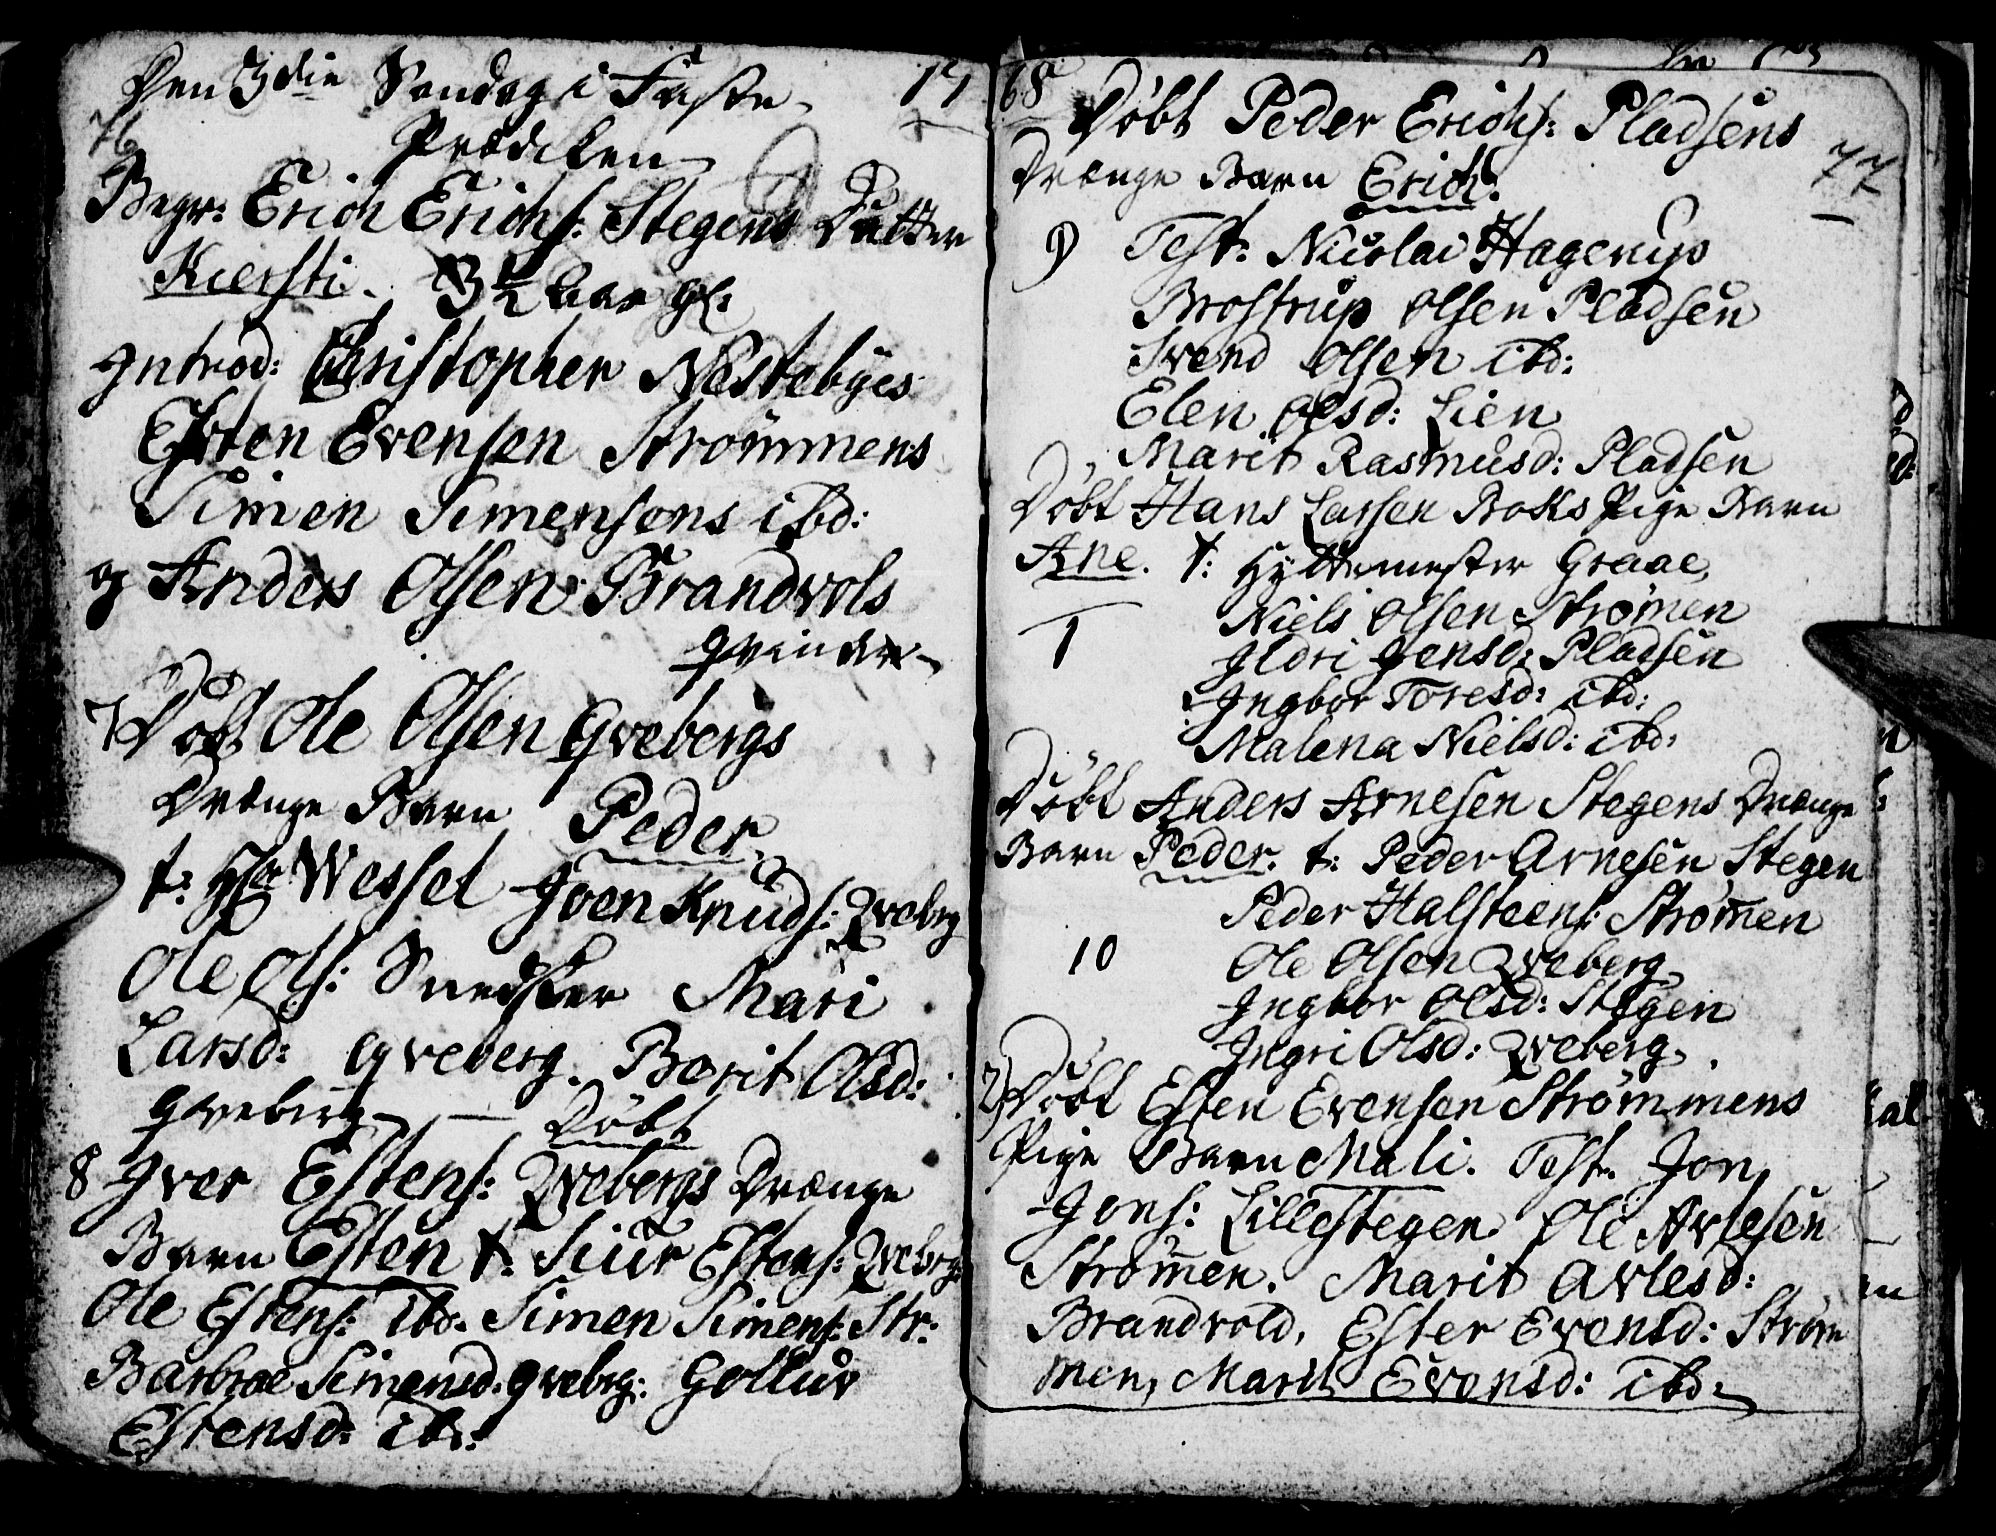 Den 3die Søndag i Faste. 17
76
Prædiken
Begr: Erich Erichs: Stegens Datter
Kiersti. 3½ Aar gl:
Introd: Christopher Nestebyes
Esten Evensen Strømmens
Simen Simensøns ibd:
og Anders Olsen Brandvols
qvinder.
7 Døbt Ole Olsen Qvebergs
Drænge Barn Peder.
t: Hr Wessel Joen Knuds: Qvebrg
Ole Ols: Snedker Mari
Larsd: Qveberg. Berit Olsd:
Qveberg — Døbt
8 Iver Estens: Qvebergs Drænge
Barn Esten t: Siur Estens: Qvebrg:
Ole Estens: ibd. Simen Simens: Str:
Barbroe Simensd. Qvebrg: Gollur
Estensd: ibd:
68
Døbt Peder Erichs: Pladsens
77
Drænge Barn Erich.
9 Test: Nicolai Hagerup
Brostrup Olsen Pladsen
Svend Olsen ibd:
Elen Olsd: Lien
Marit Rasmusd: Pladsen
Døbt Hans Larsen Boks Pige Barn
Ane. t: Hyttemester Graae,
Niels Olsen Strømen
1 Ildri Jensd: Pladsen
Ingbor Toresd: ibd:
Malena Nielsd: ibd:
Døbt Anders Arnesen Stegens Drænge
Barn Peder. t: Peder Arnesen Stegen
Peder Halsteens: Strømen
10 Ole Olsen Qveberg
Ingbor Olsd: Stegen
Ingri Olsd: Qveberg.
2) Døbt Esten Evensen Strømmens
Pige Barn Mali. Test: Jon
Jons: Lillestegen. Ole Avlesen
Strømmen. Marit Avlesd:
Brandvold, Ester Evensd: Strøm
men, Marit Evensd: ibd: